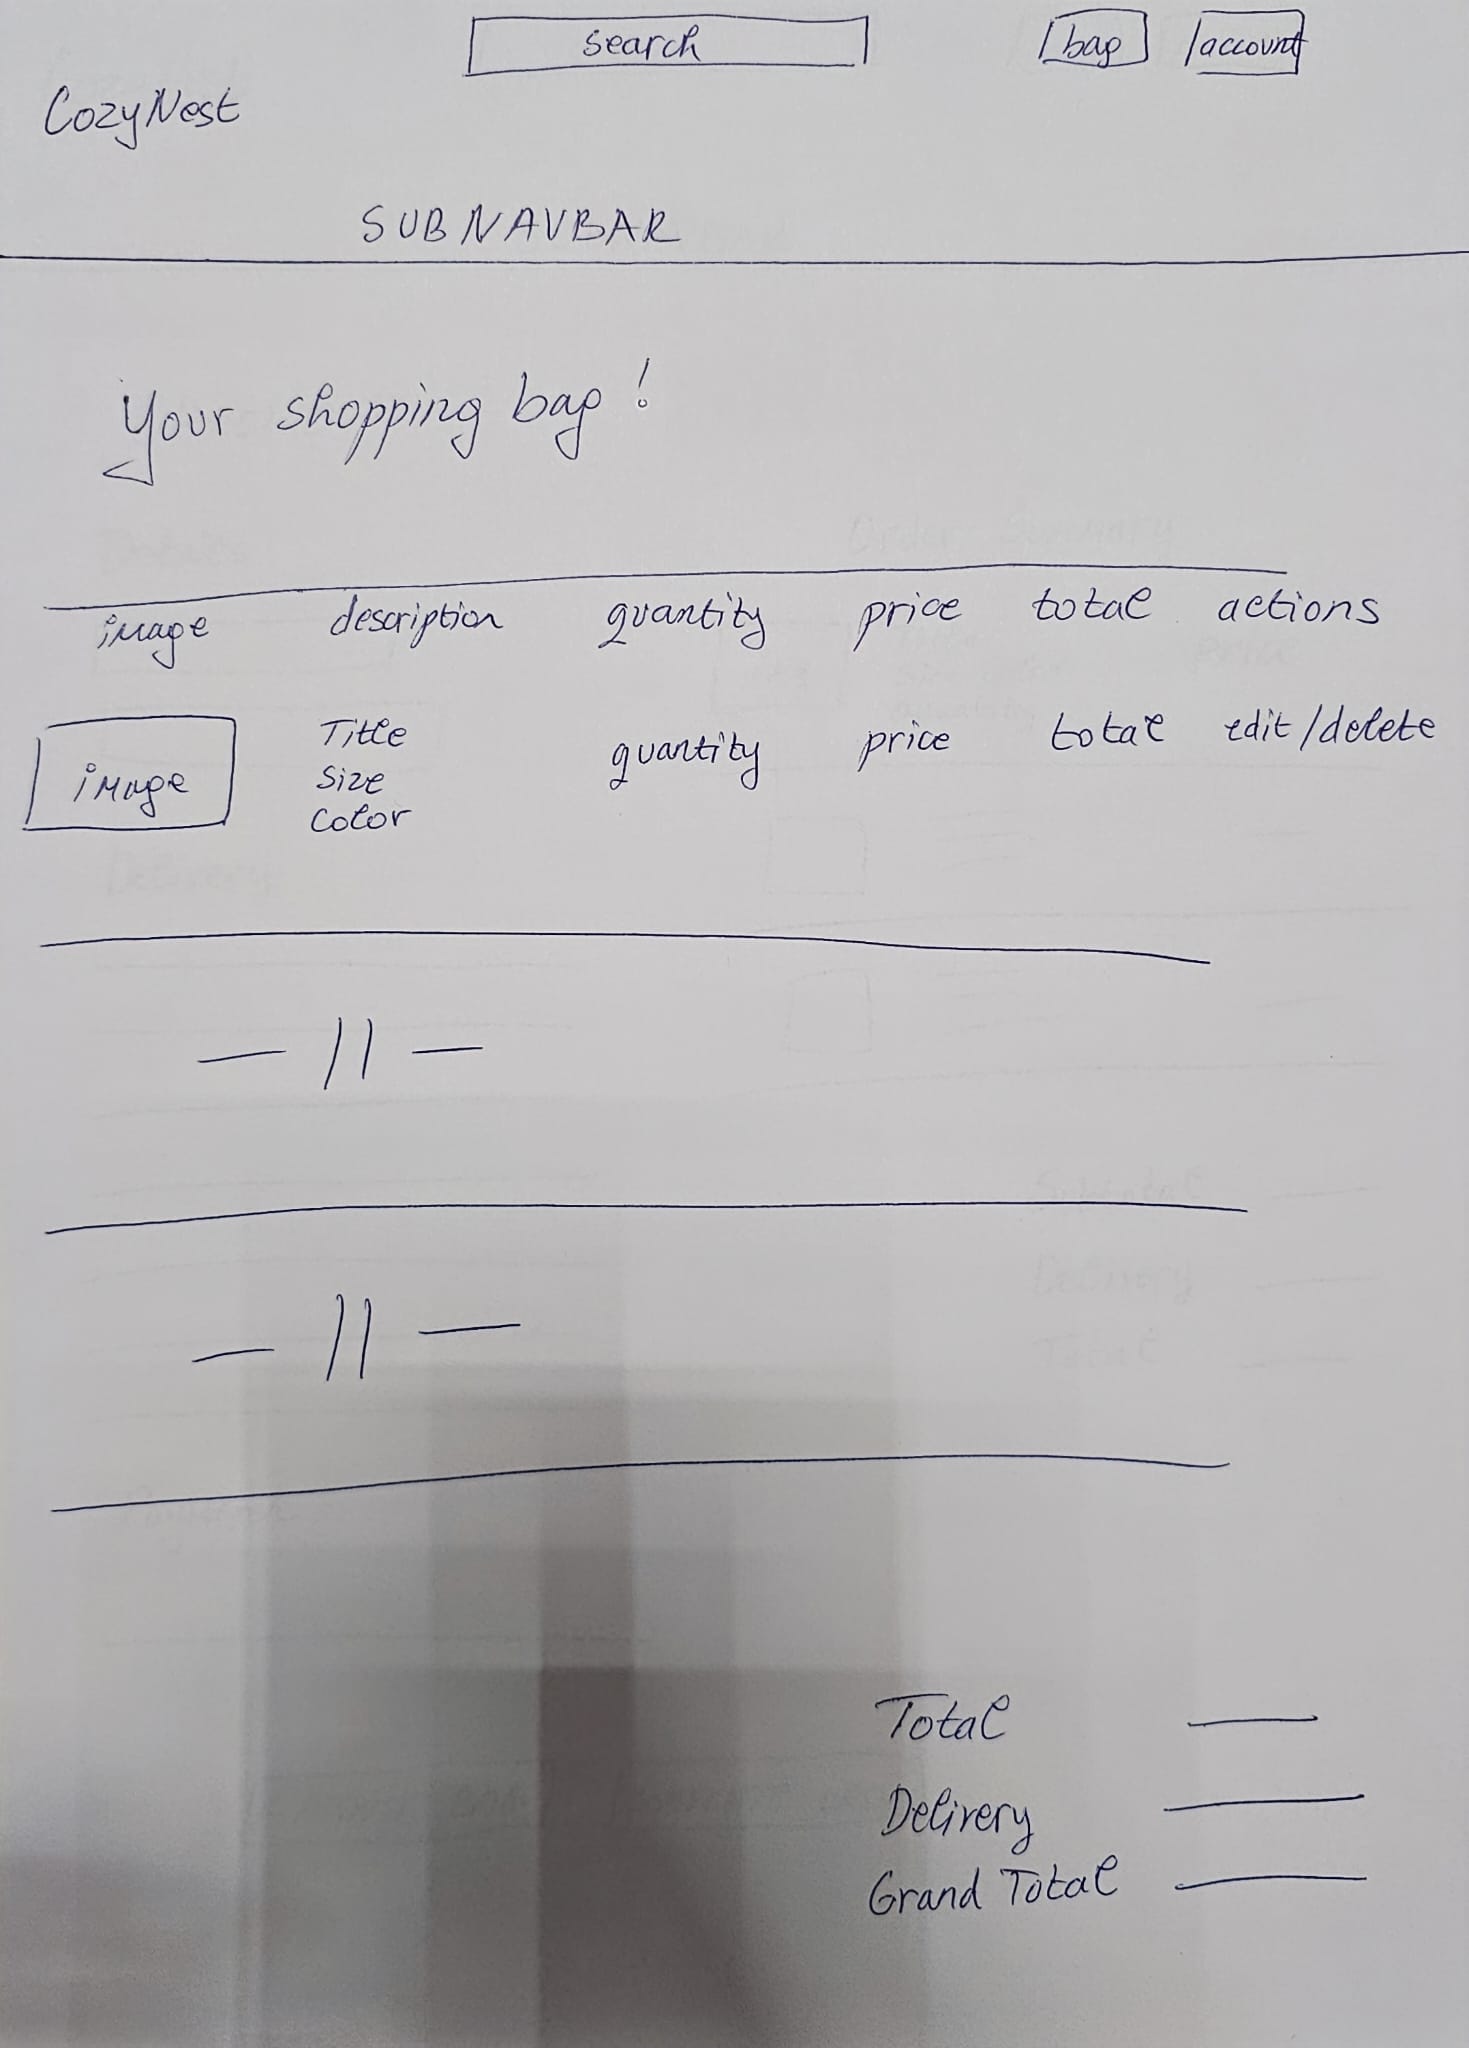 search
bag
account
CozyNest
SUBNAVBAR
Your shopping bag!
image description quantity price total actions
image
Title
Size
Color
quantity price total edit/delete
— || —
— || —
Total
Delivery
Grand Total